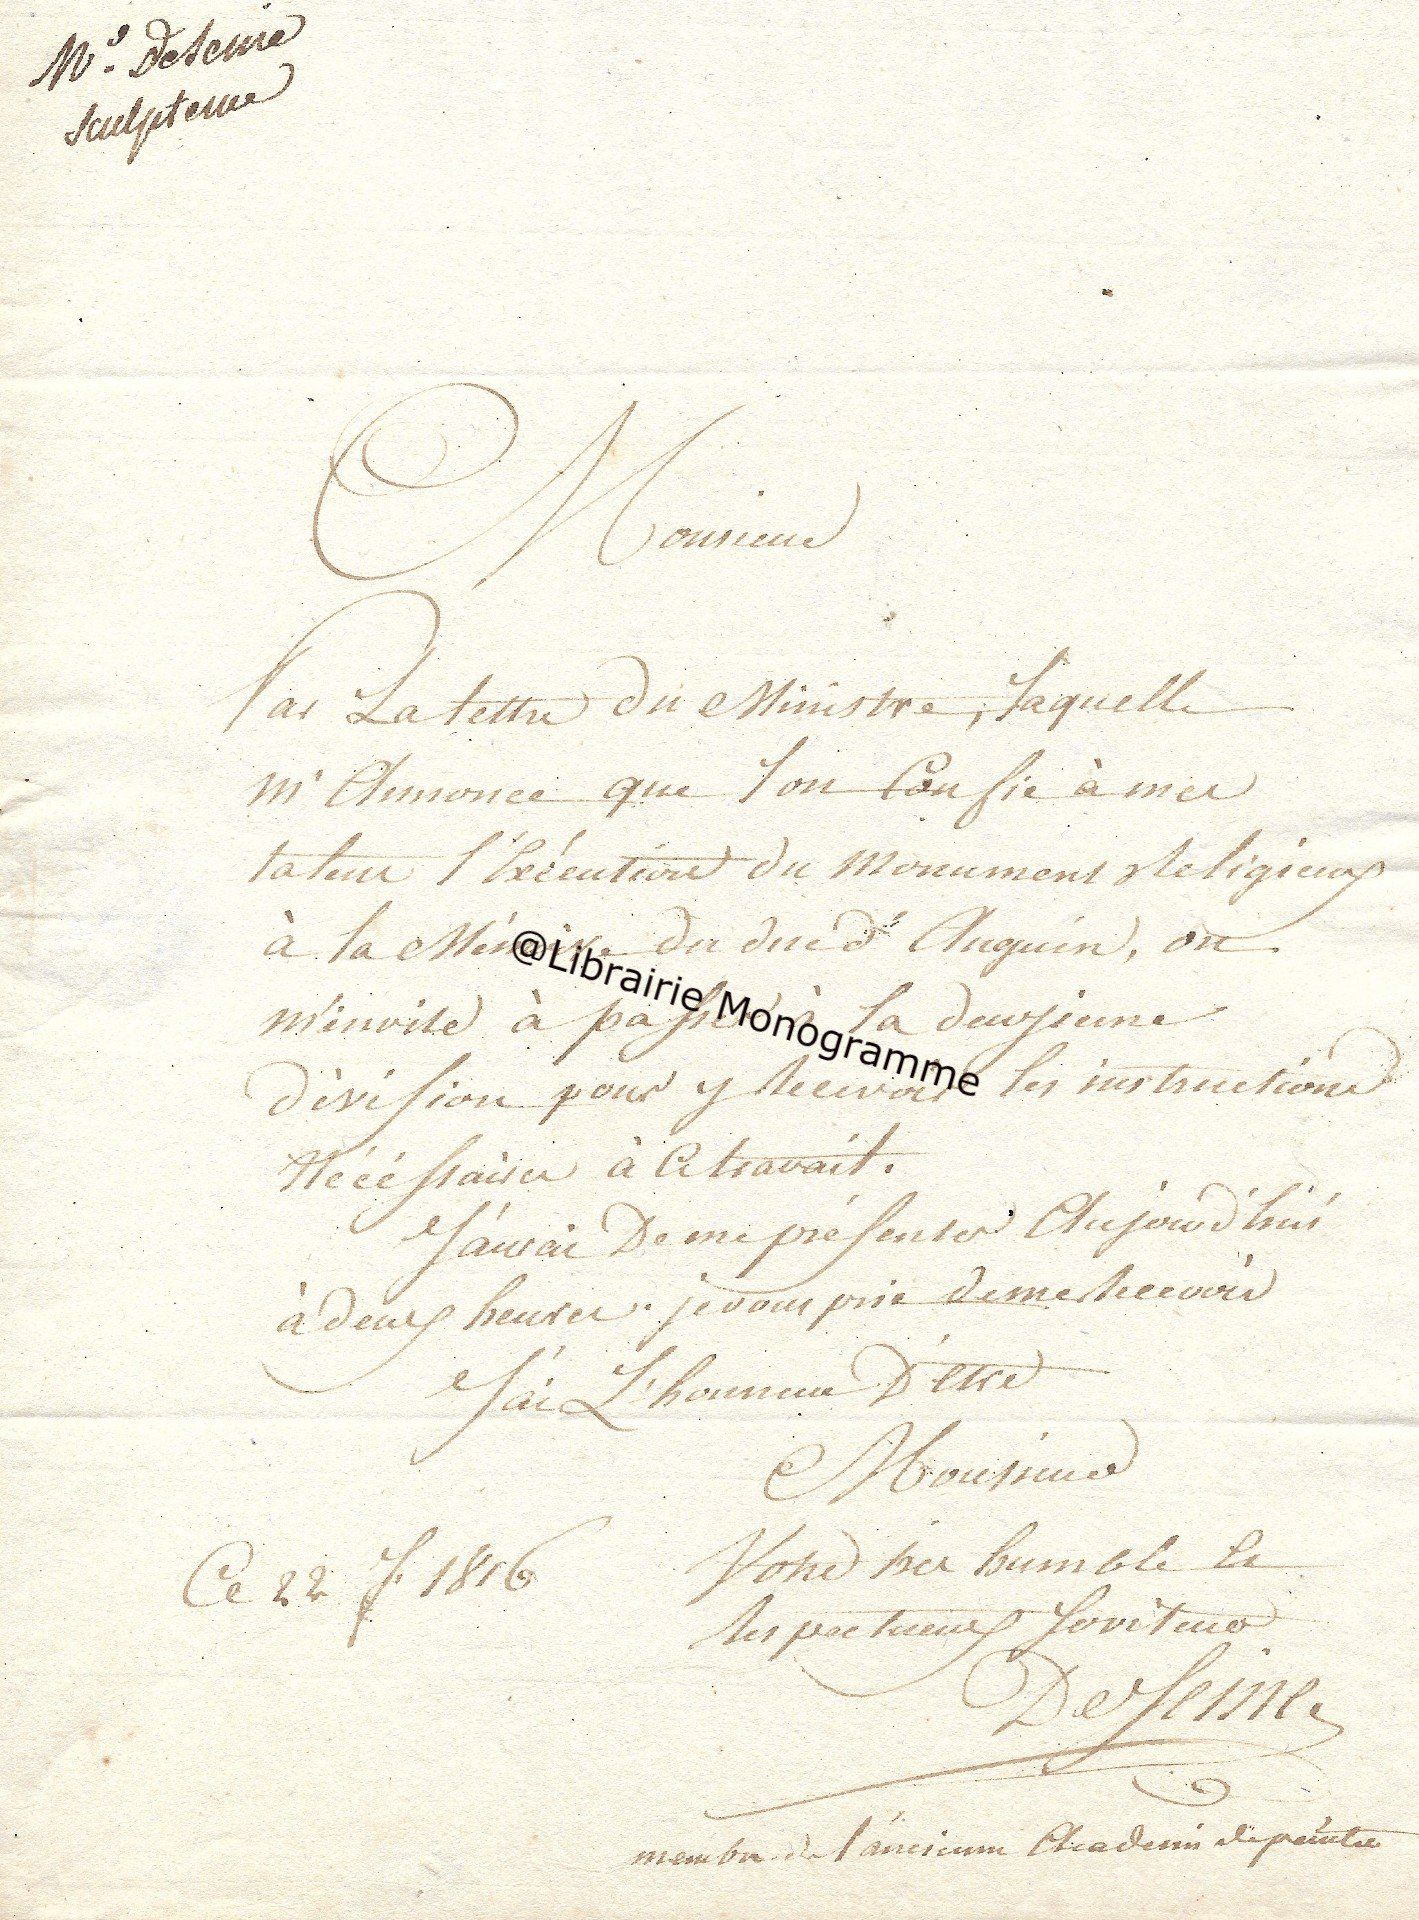 Mr. Deseine
sculpteur
Monsieur
Par La lettre du Ministre, laquelle
m'Annonce que l'on Confie à mes
talens l'Exécution du Monument Religieux
à la Mémoire du duc d'Anguin, on
m'invite à passer à la deuxieme
division pour y Recevoir les instructions
Nécéssaires à Ce travail.
J'aurai De me présenter Aujourd'hui
à deux heures. je vous prie de me Recevoir
J'ai L'honneur D'être
Monsieur
Ce 22 f. 1816
Votre très humble et
Respectueux Serviteur
DeSeine
membre de l'ancienne Academie de peintre
@Librairie Monogramme